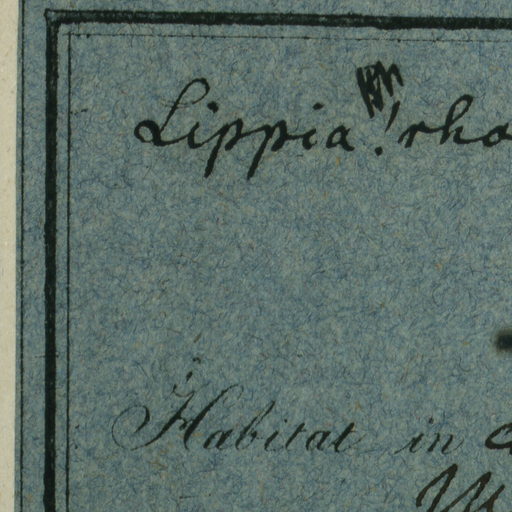 Lippia! rho
Habitat in